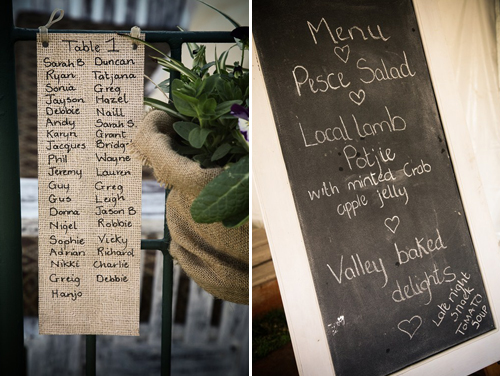 Table 1
Sarah B Duncan
Ryan Tatjana
Sonia Greg
Jayson Hazel
Debbie Naill
Andy Sarah S.
Karyn Grant
Jacques Bridg
Phil Wayne
Jeremy Lauren
Guy Greg
Gus Leigh
Donna Jason B
Nigel Robbie
Sophie Vicky
Adrian Richard
Nikki Charlie
Greig Debbie
Hanjo
Menu
Pesce Salad
Local lamb
Potjie
with minted Crab
apple jelly
Valley baked
delights
Late night
Snack
TOMATO
SOUP